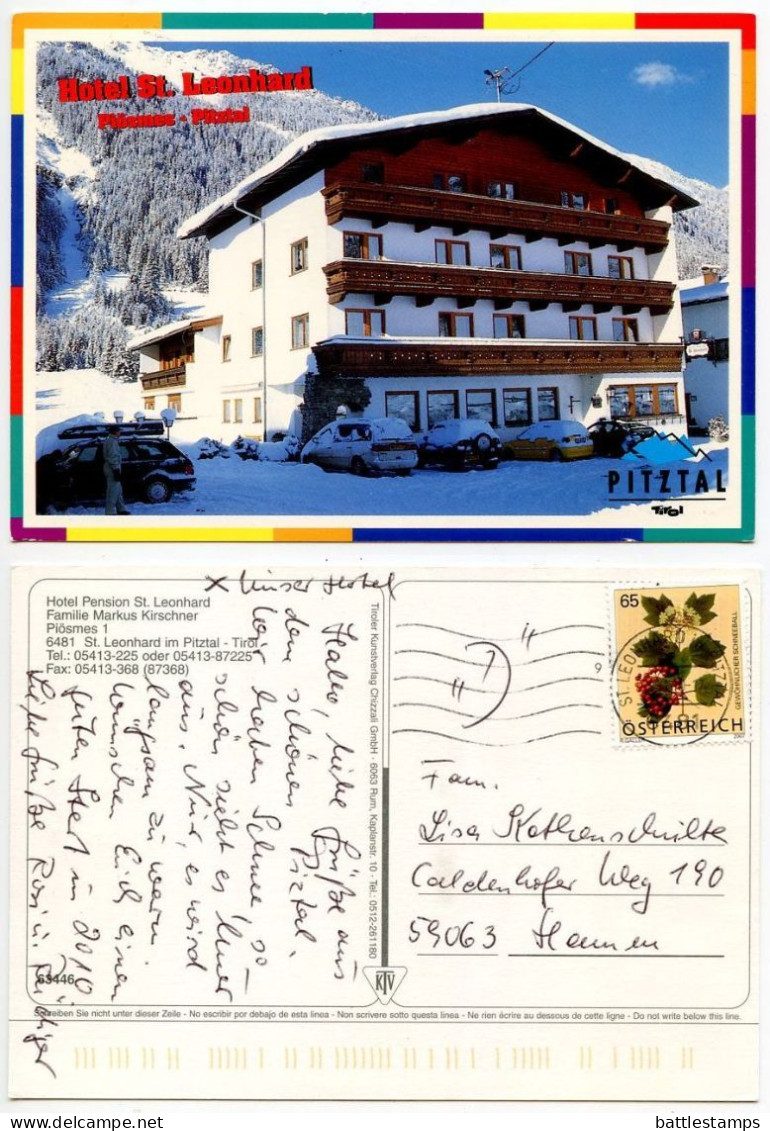 Hotel St. Leonhard
Plösmes - Pitztal
PITZTAL
Tirol
Hotel Pension St. Leonhard
Familie Markus Kirschner
Plösmes 1
6481 St. Leonhard im Pitztal - Tirol
Tel.: 05413-225 oder 05413-87225
Fax: 05413-368 (87368)
x Unser Hotel
Hallo, liebe Grüße aus
dem schönen Pitztal.
Wir haben Schnee, so
schön sieht es hier
aus. Nur, es wird
langsam zu warm.
Wünschen Euch einen
guten Start in 2010
Liebe Grüße Rosi u. Rüdiger
63446
Tiroler Kunstverlag Chizzali GmbH - 6063 Rum, Kaplanstr. 10 - Tel.: 0512-261180
KTV
65
GEWÖHNLICHER SCHNEEBALL
ÖSTERREICH
ST. LEON
9
Fam.
Lisa Kathenschulte
Caldenhofer Weg 190
59063 Hamm
Schreiben Sie nicht unter dieser Zeile - No escribir por debajo de esta linea - Non scrivere sotto questa linea - Ne rien écrire au dessous de cette ligne - Do not write below this line.
battlestamps